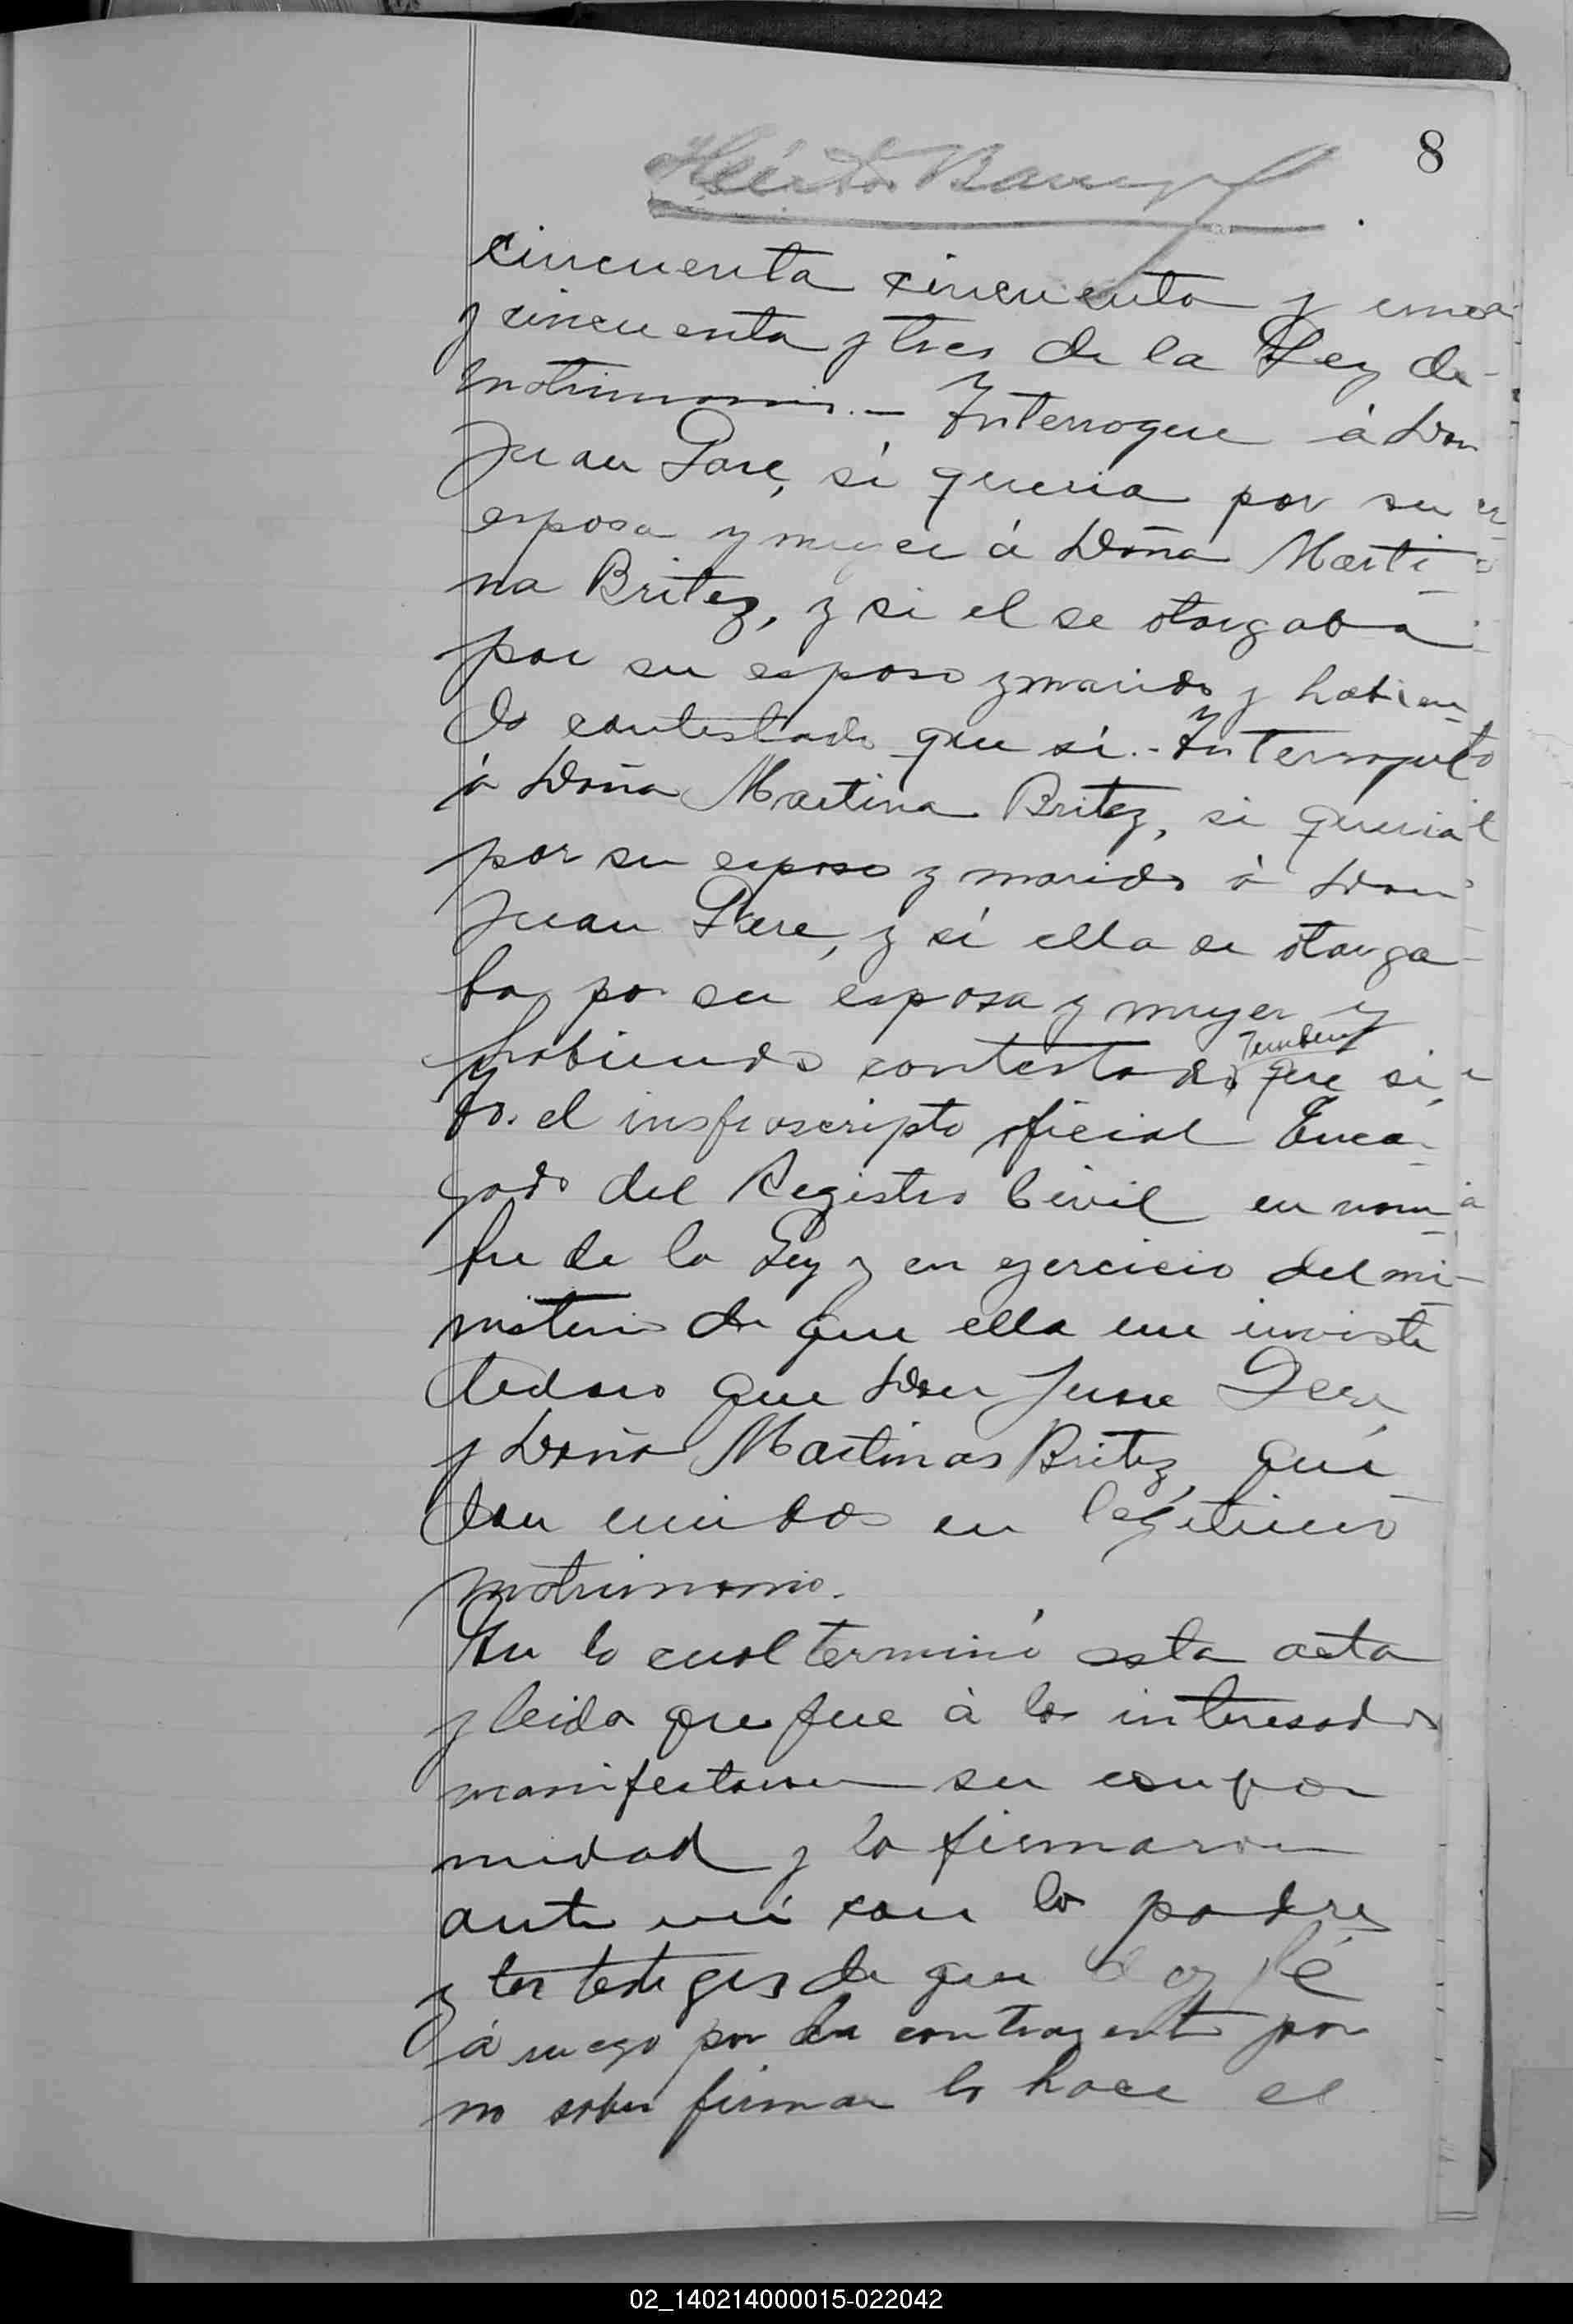 8
cincuenta cincuenta y uno
y cincuenta y tres de la Ley de
matrimonio.- Interrogue á Don
Juan Pare, si queria por su
esposa y mujer á Doña Marti-
na Britez, y si el se otorgaba
por su esposo y marido y habien-
do contestado que si.- Interrogue
á Doña Martina Britez, si queria
por su esposo y marido á Don
Juan Pare, y si ella se otorga
ba por su esposa y mujer y
habiendo contestado tambien que si,
yo. el insfrascripto oficial Enca-
gado del Registro Civil en nom-
bre de la Ley y en ejercicio del mi-
nisterio de que ella me inviste
declaro que Don Juan Pere
y Doña Martina Britez, que-
dan unidos en legitimo
matrimonio.
En lo cual terminó esta acta
y leida que fue á los interesados
manifestaron su confor
midad y la firmaron
ante mi con los padres
y los testigos de que doy fé
á ruego por la contrayente por
no saber firmar lo hace el
02_140214000015-022042